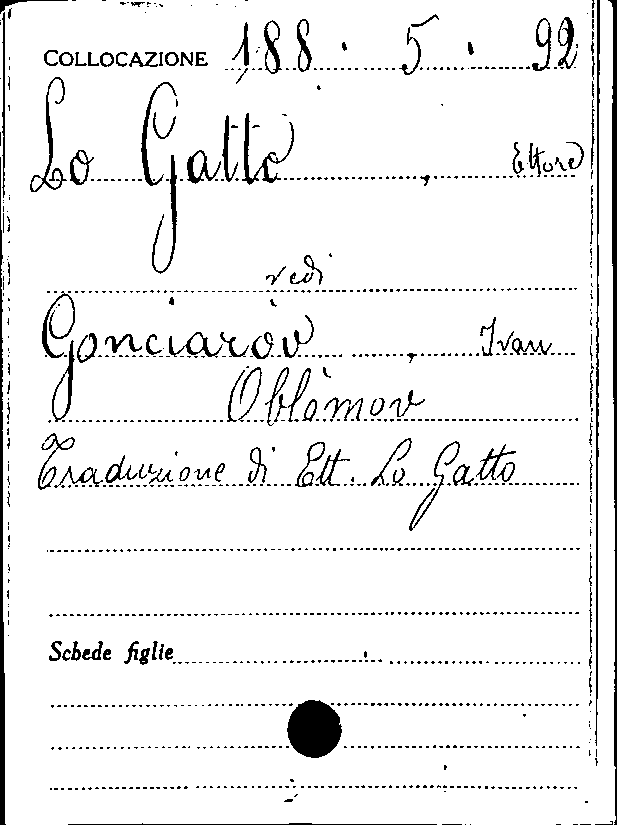 COLLOCAZIONE 188 . 5 . 92
Lo Gatto , Ettore
vedi
Gonciaròv , Ivan
Oblòmov
Traduzione di Ett. Lo Gatto
Schede figlie